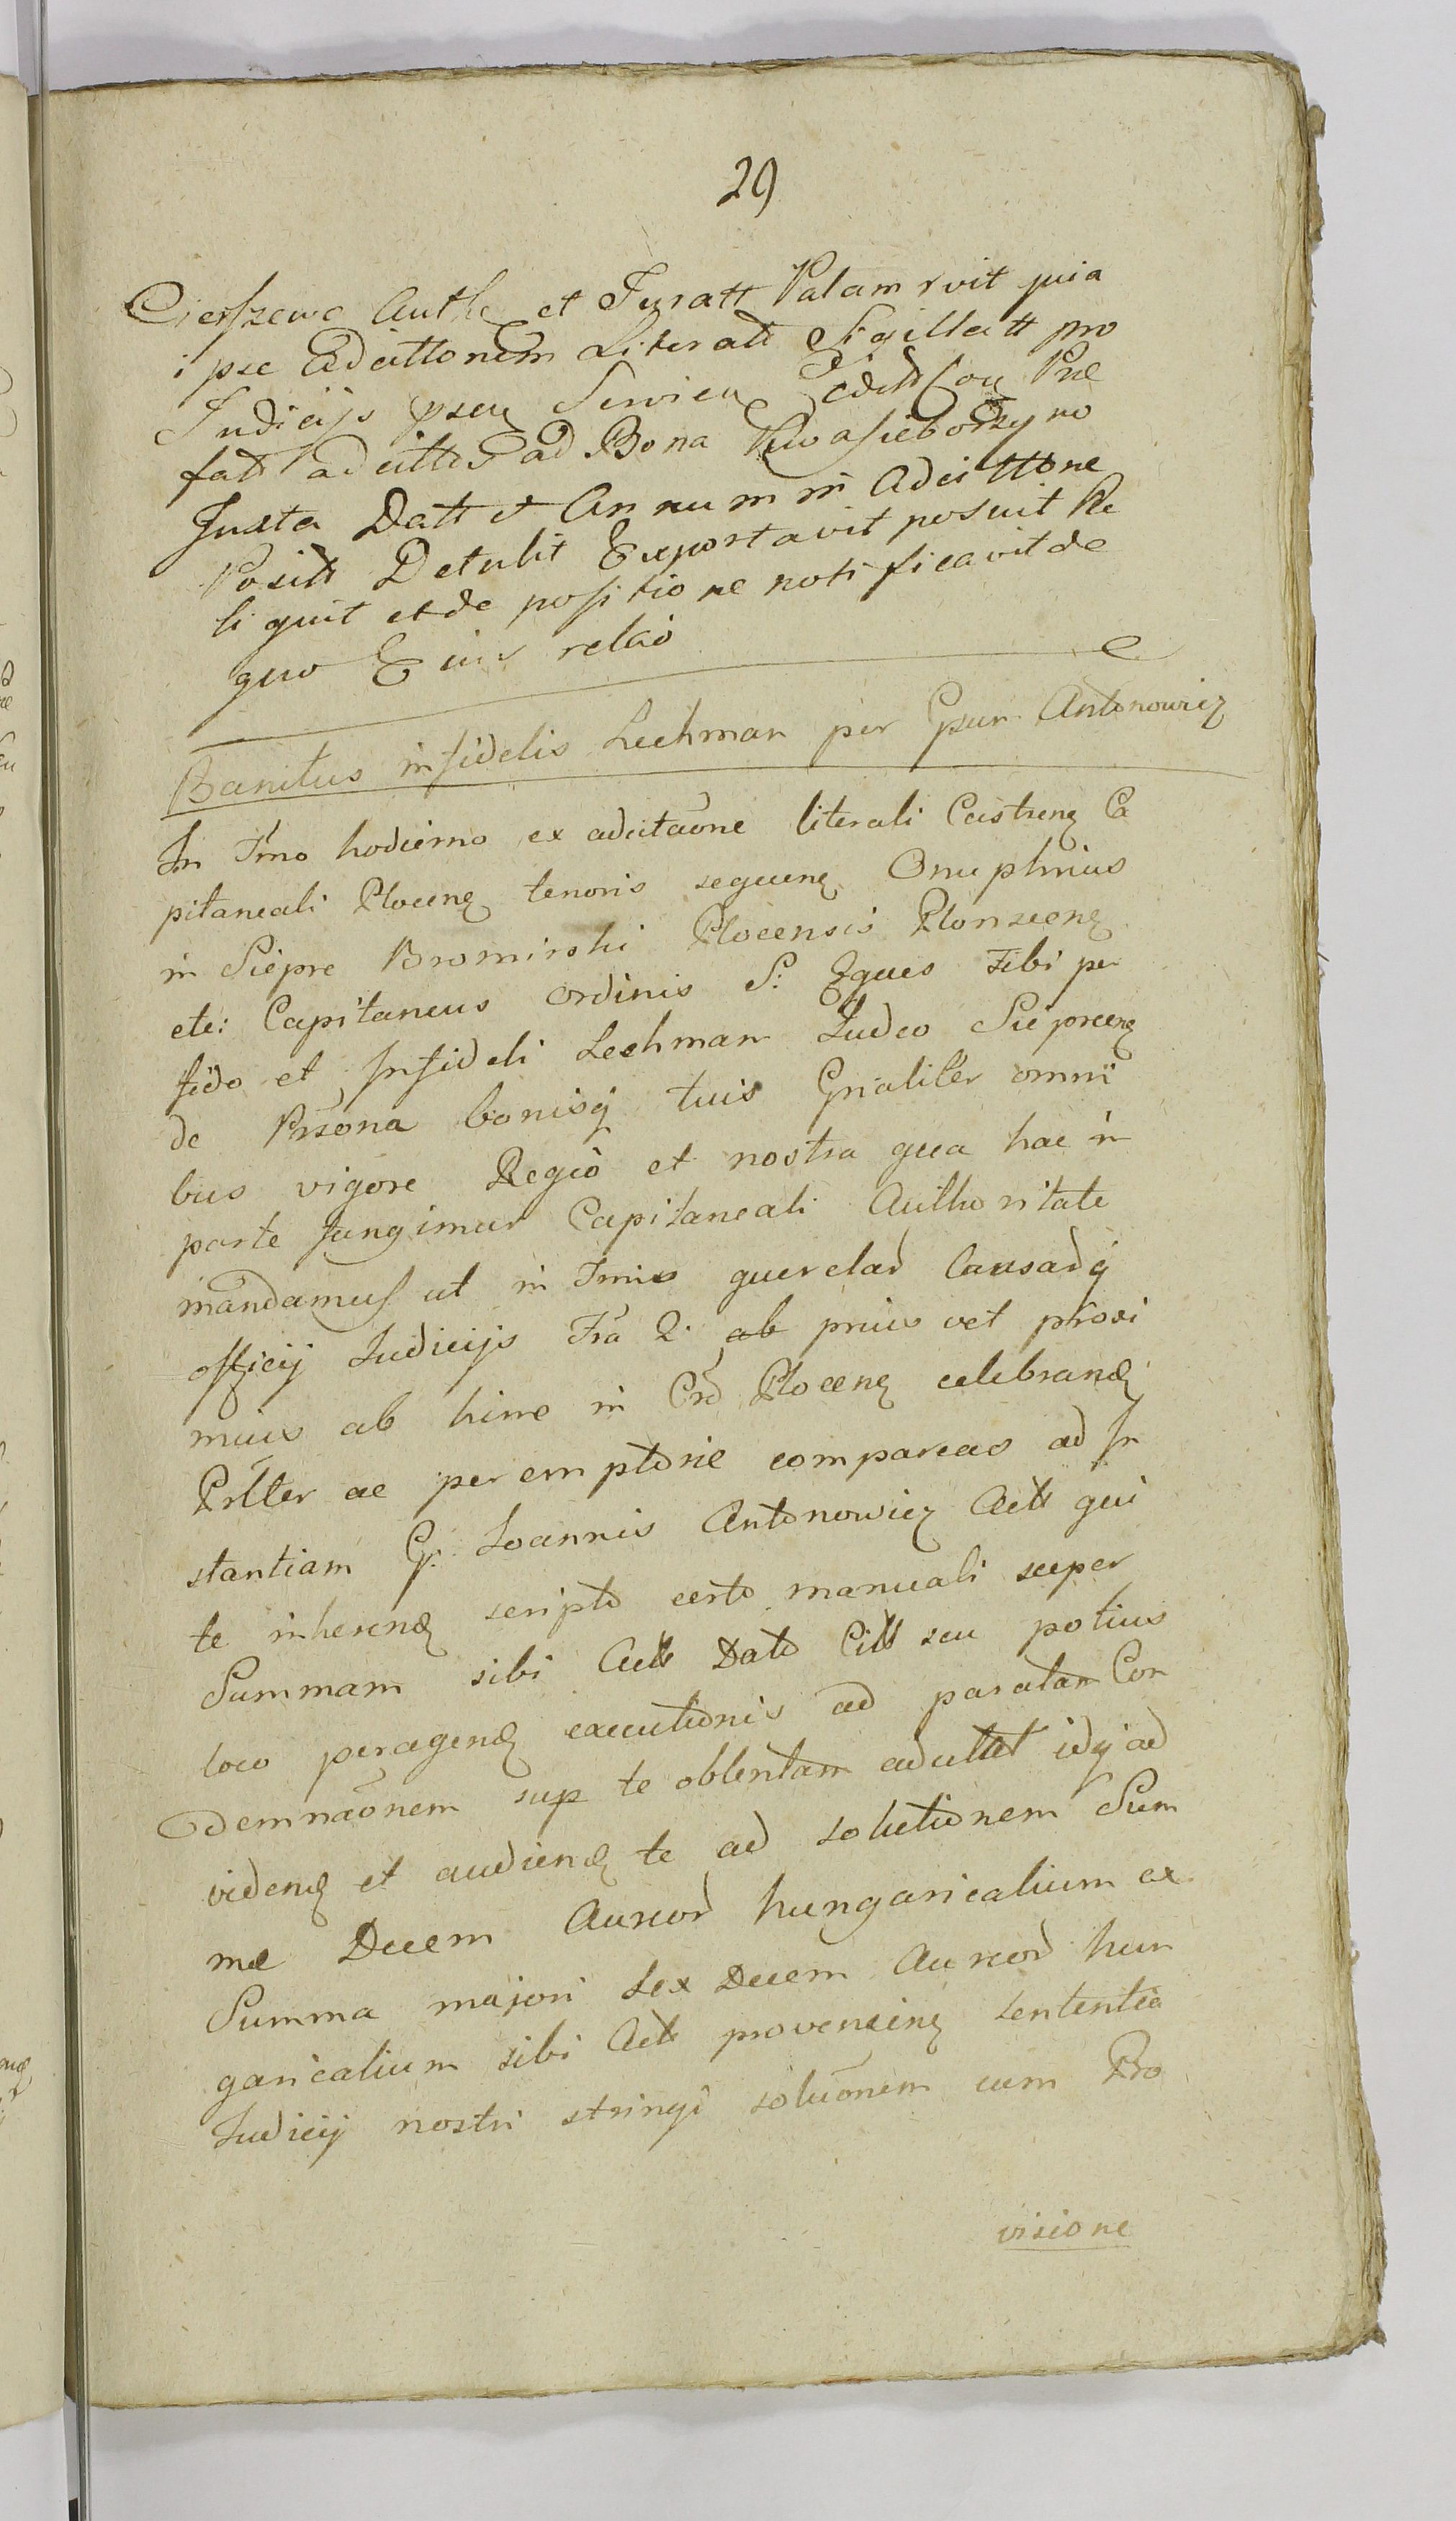 29
Cierszewo Authe et Juratt Palam rvit quia
ipse Adcittonem Literatt Sigillatt pro
Judicijs psen Servien Editt Cou Præ
fatt adcittos ad Bona Kwasieborzyno
Juxta Datt et Annum in Adcittone
Positt Detulit Exportavit posuit Re
liquit et de positione notificavit de
quo Eius relaō
Banitus infidelis Lechman per Gsum Antonowicz
In Tmo hodierno ex adcitaōne literali Castren Ca
pitaneali Plocen tenoris sequen Onuphrius
in Siepre Bromirski Plocensis Plonscen
etc: Capitaneus Ordinis S: Eques Tibi per
fido et Infideli Lechman Judeo Sieprcen
de Prsona bonisq tuis Gnaliter omni
bus vigore Regiō et nostra qua hac in
parte fungimur Capitaneali Authoritate
mandamus ut in Tmis querelar Causarq
officij Judicijs Fra 2. ab prius vel proxi
mius ab hinc in Crō Plocen celebrand
Prlter ac peremptorie compareas ad In
stantiam G: Joannis Antonowicz Actt qui
te inherend scripto certo manuali super
Summam sibi Actt Dato Citt seu potius
loco peragend executionis ad paratam Con
demnaōnem sup te obtentam adcittat idq ad
videnď et audienď te ad solutionem Sum
mæ Decem Aureor hungaricalium ex
Summa majori Sex Decem Aureor hun
garicalium sibi Actt provenien sententia
Judicij nostri stringi soluōnem cum Pro
visione